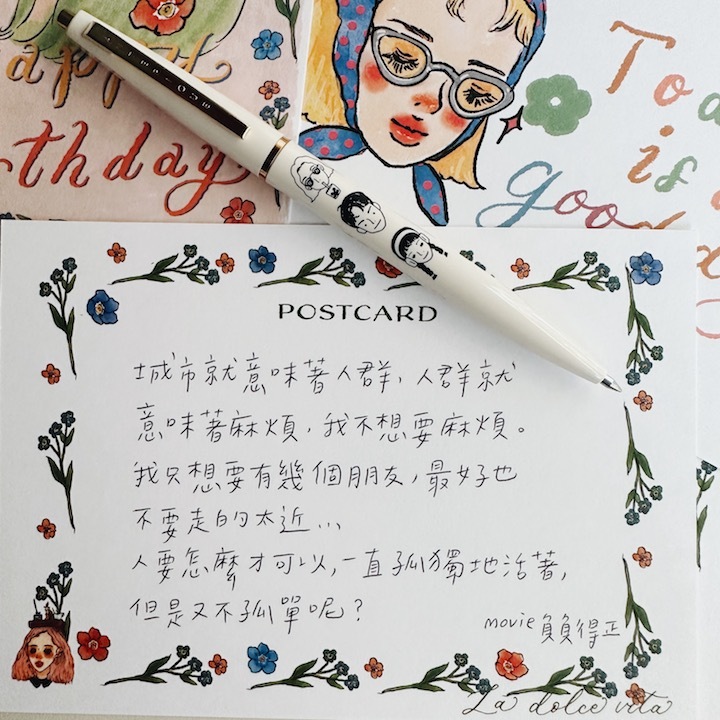 appy
thday
Today
is a
good
POSTCARD
城市就意味著人群, 人群就
意味著麻煩, 我不想要麻煩。
我只想要有幾個朋友, 最好也
不要走的太近...
人要怎麼才可以, 一直孤獨地活著,
但是又不孤單呢?
movie 負負得正
La dolce vita